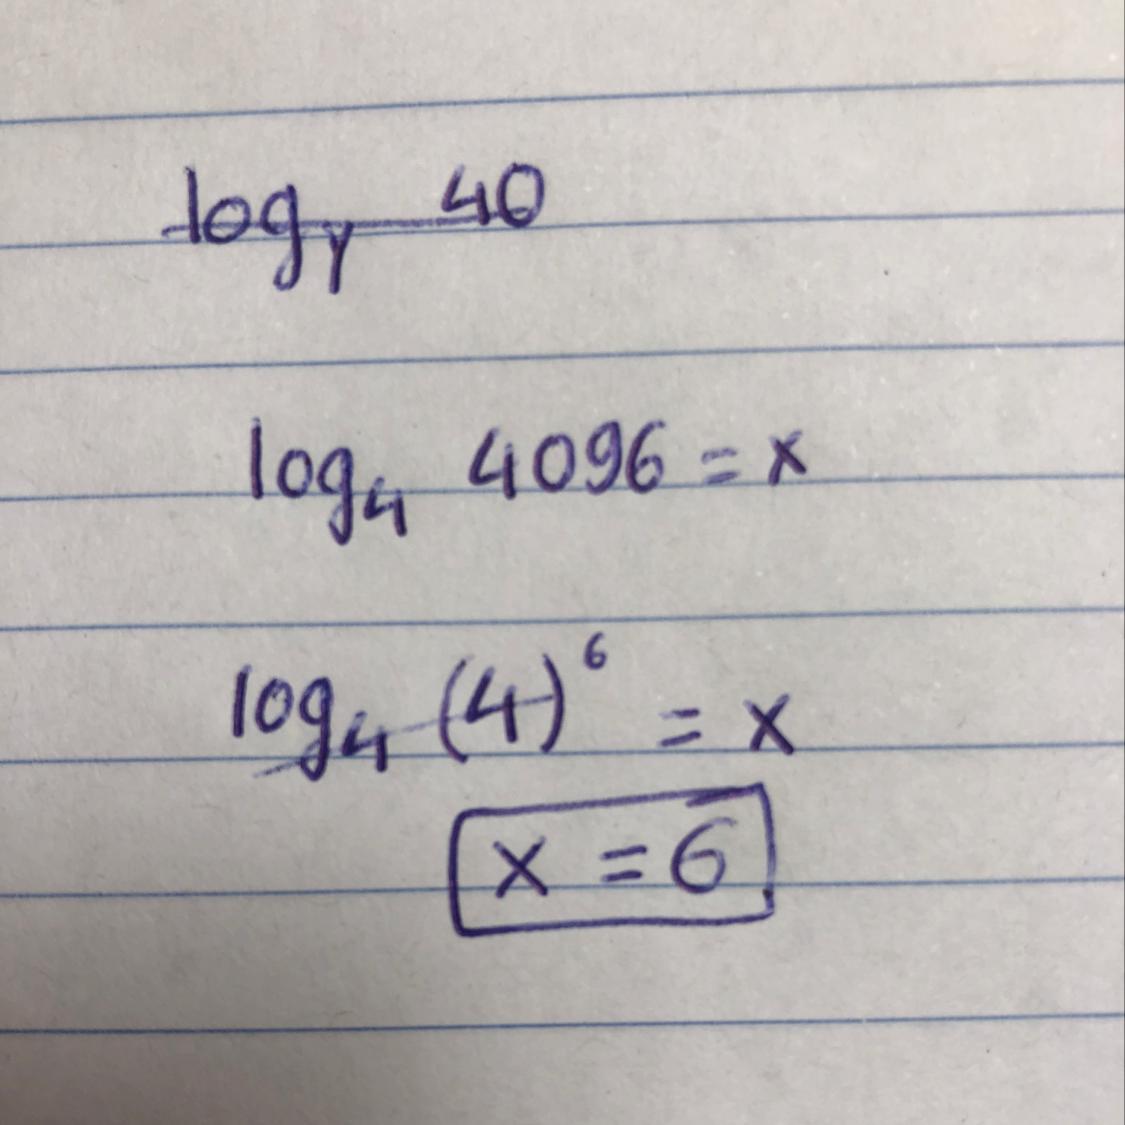 log_γ 40
log₄ 4096 = x
log₄ (4)⁶ = x
x = 6